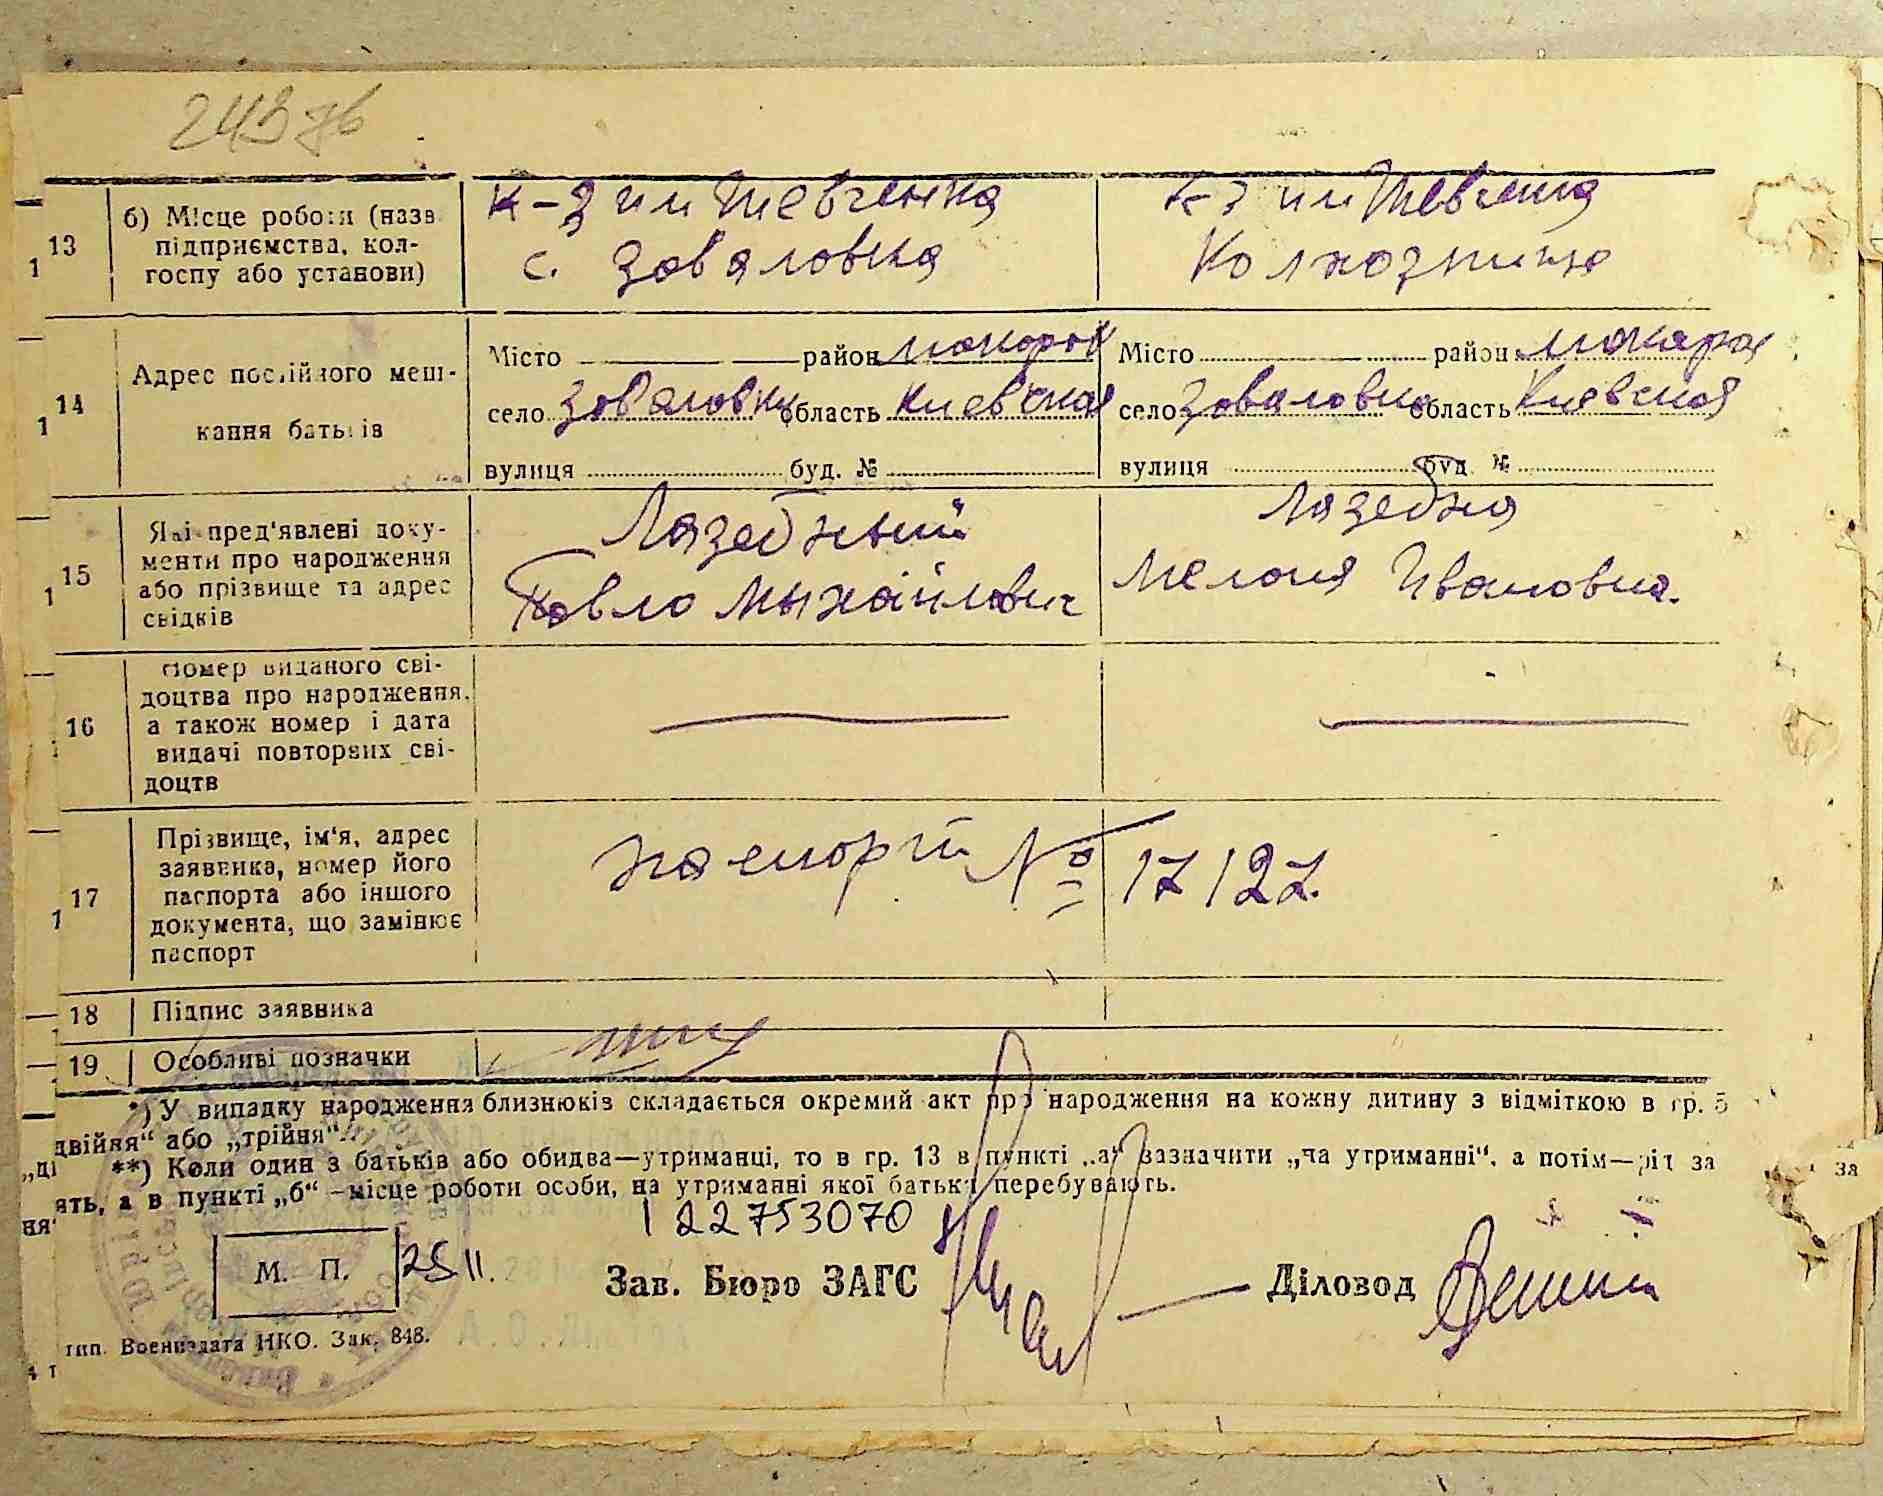 24376
13
б) Місце роботи (назв
підприємства, кол-
госпу або установи)
к-з им Шевченка
с. Заваловка
к-з им Шевченка
Колхозница
14
Адрес постійного меш-
кання батьків
Місто район макаров
село Заваловка область Киевская
вулиця буд. №
Місто район макаров
село Заваловка область Киевская
вулиця буд. №
15
Які пред'явлені доку-
менти про народження
або прізвище та адрес
свідків
Лазебный
Павло Мыхайлович
Лазебна
Мелания Ивановна.
16
Номер виданого сві-
доцтва про народження,
а також номер і дата
видачі повторних сві-
доцтв
17
Прізвище, ім'я, адрес
заявника, номер його
паспорта або іншого
документа, що замінює
паспорт
паспорт № 17127.
18 Підпис заявника
19 Особливі позначки
*) У випадку народження близнюків складається окремий акт про народження на кожну дитину з відміткою в гр. 5
двійня“ або „трійня“.
**) Коли один з батьків або обидва—утриманці, то в гр. 13 в пункті „а“ зазначити „на утриманні“, а потім—рід за
ять, а в пункті „б“ –місце роботи особи, на утриманні якої батьки перебувають.
122753070
М. П. 25 11.
Зав. Бюро ЗАГС Діловод
тип. Воениздата НКО. Зак. 848.